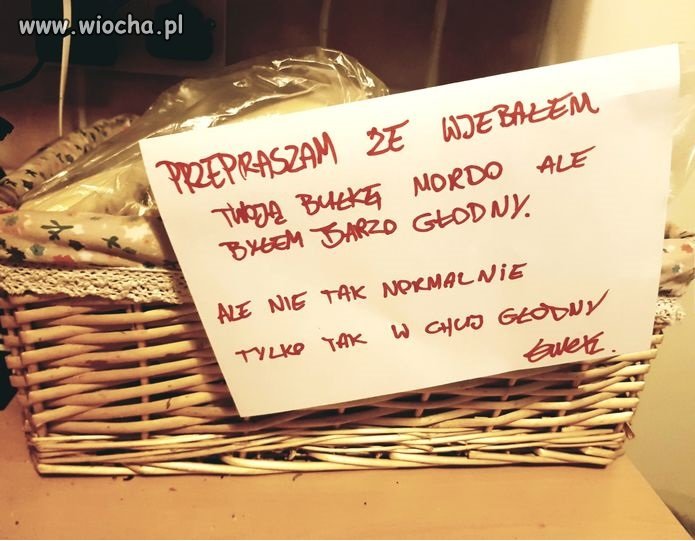 www.wiocha.pl
PRZEPRASZAM ŻE WJEBAŁEM
TWOJĄ BUŁKĘ MORDO ALE
BYŁEM BARZO GŁODNY.
ALE NIE TAK NORMALNIE
TYLKO TAK W CHUJ GŁODNY